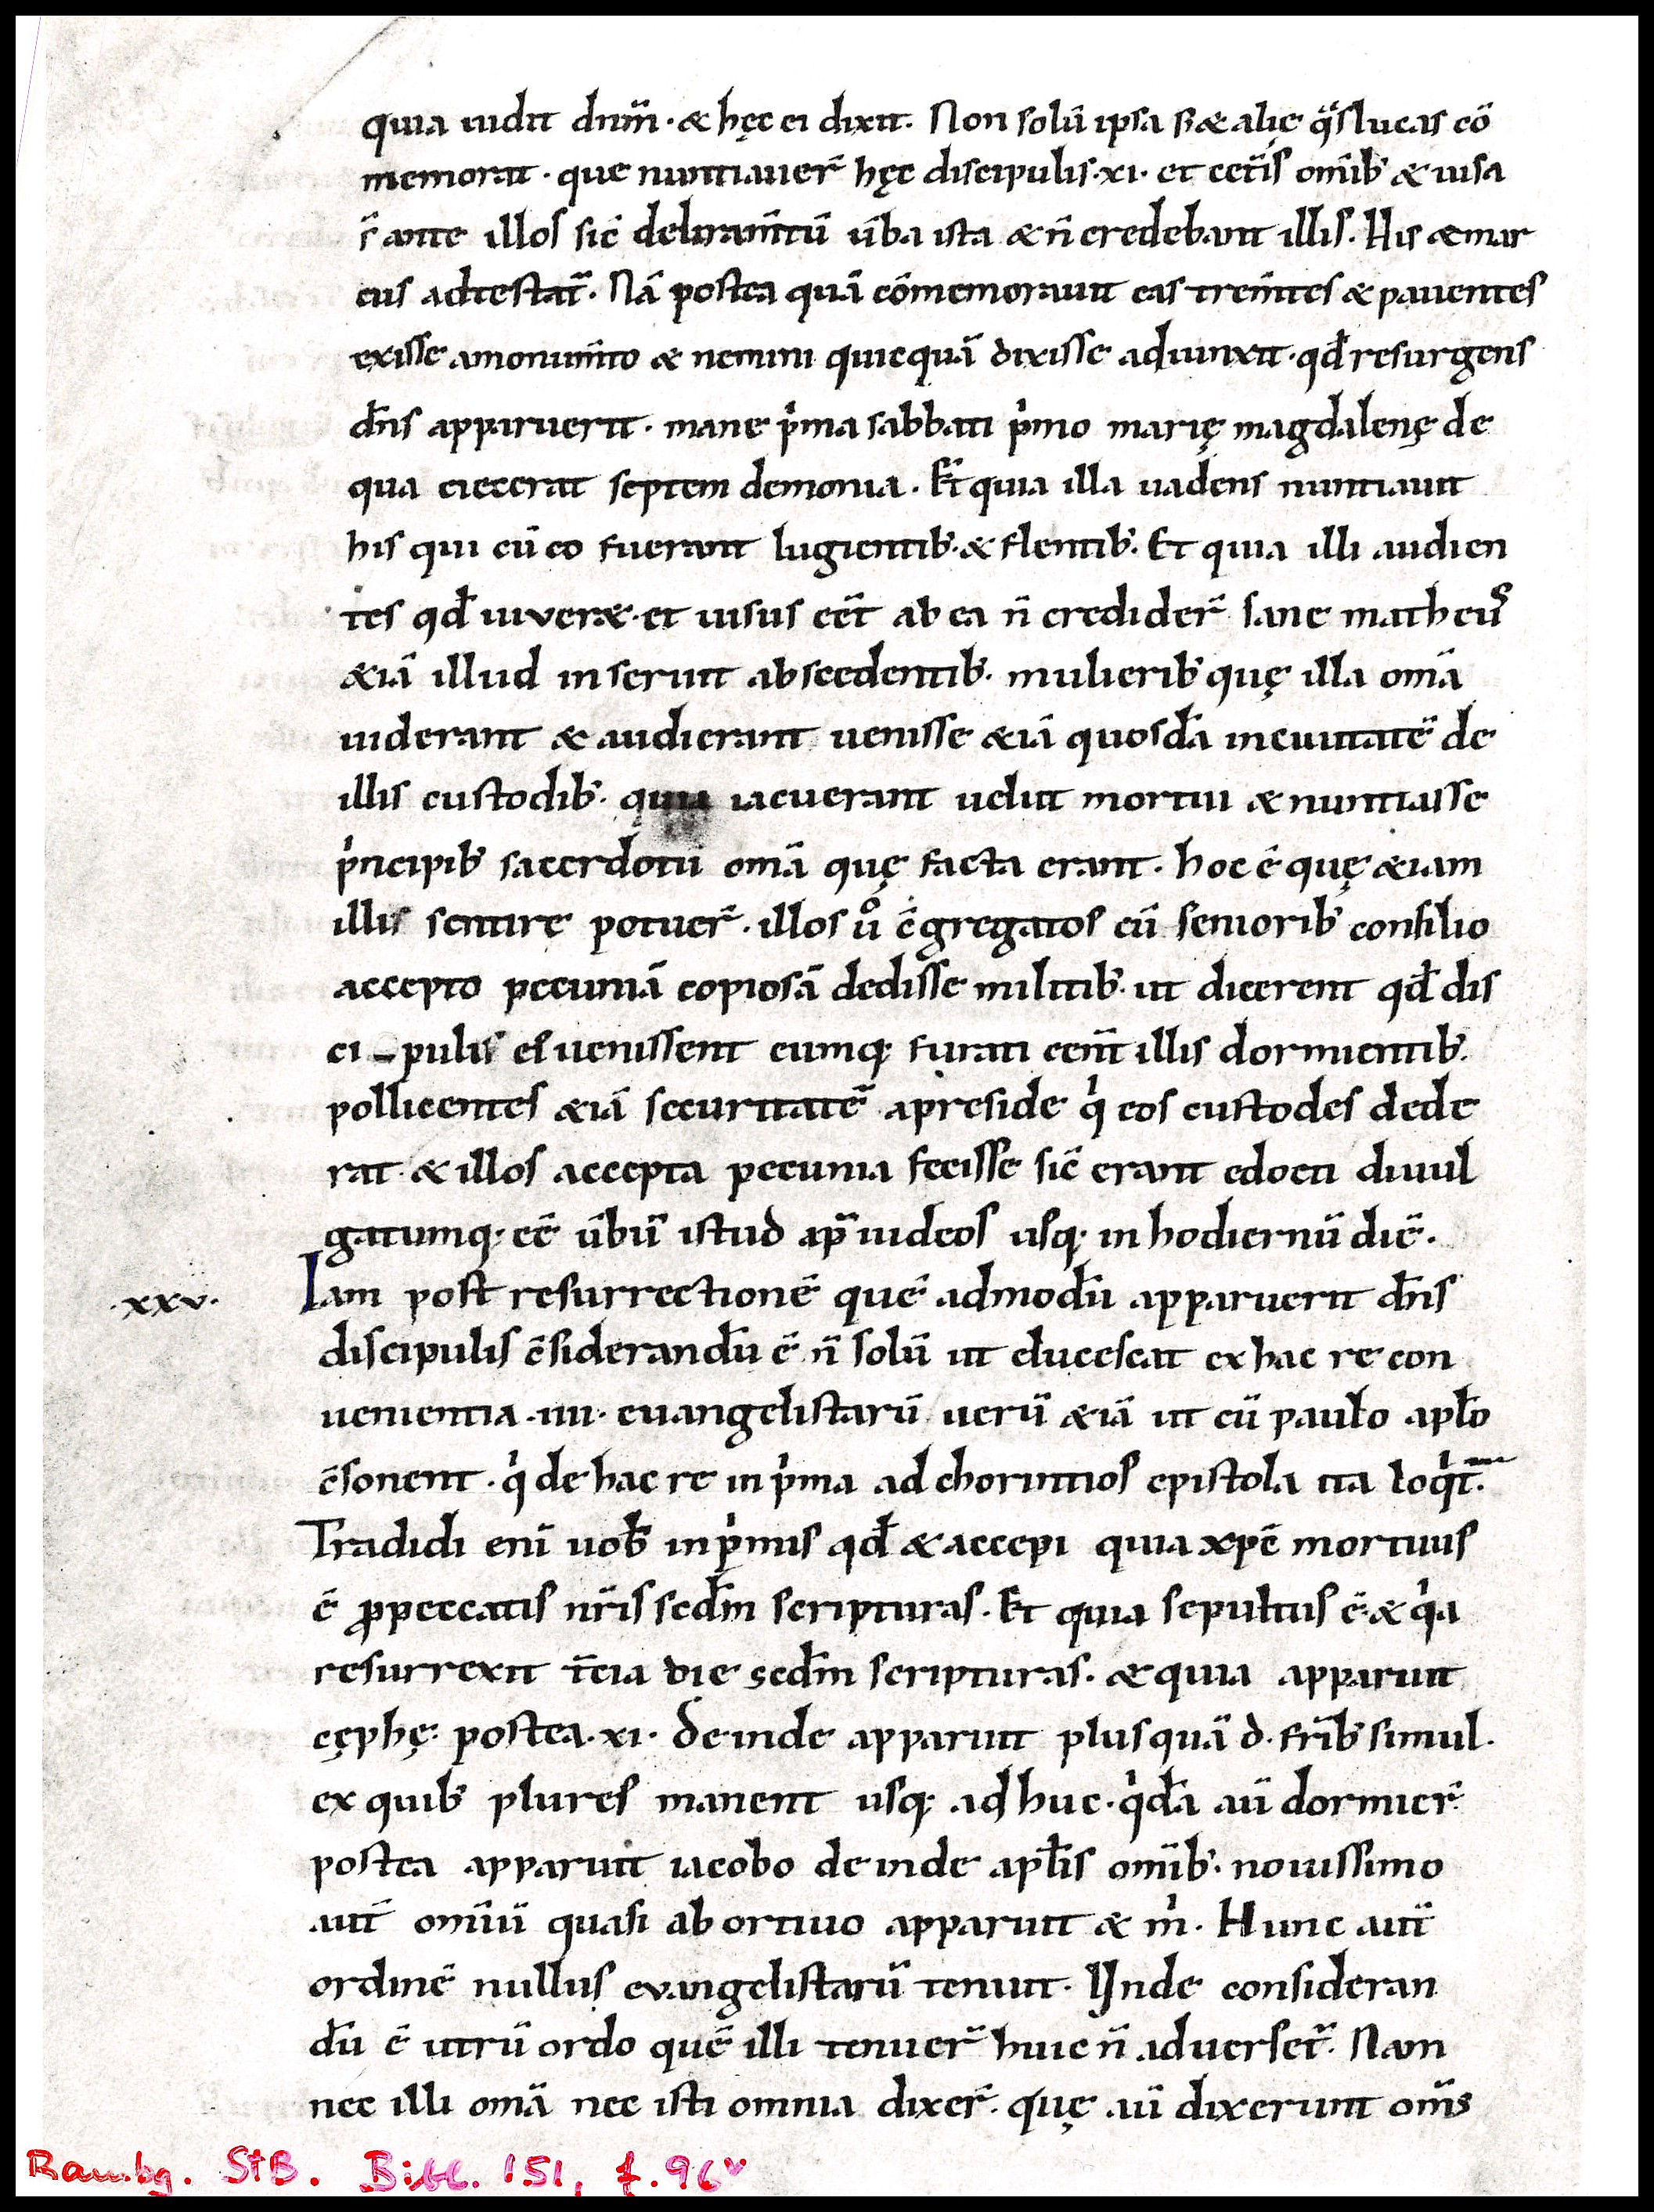 quia uidit dnm̄· & hęc ei dixit. Non solū ipsa s; & alię q̄s lucas cō
memorat· que nuntiauer̄ hęc discipulis·xi· et cet̄is om̄ib; & uisa
s̄ ante illos sic̄ deliram̄tū ūba ista & n̄ credebant illis. His & mar
cus adtestat̄. Nā postea quā cōmemorauit eas trem̄tes & pauentes
exisse amonum̄to & nemini quicquā dixisse adiunxit· qđ resurgens
dn̄s apparuerit· mane p̓ma sabbati p̓mo marię magdalenę de
qua eiecerat septem demonia. Et quia illa uadens nuntiauit
his qui cū eo fuerant lugientib;· & flentib;. Et quia illi audien
tes qđ uiuer&· et uisus eēt ab ea n̄ credider̄. Sane matheus
&iā illud inseruit abscedentib;· mulierib; quę illa om̄a
uiderant & audierant uenisse &iā quosdā inciuitatē de
illis custodib;· quia iacuerant uelut mortui & nuntiasse
p̓ncipib; sacerdotū om̄a quę facta erant. hoc ē quę &iam
illis sentire potuer̄· illos ů c̄gregatos cū seniorib; consilio
accepto pecuniā copiosā dedisse militib;· ut dicerent qđ dis
ci-pulis ei uenissent eumq; furati eēnt illis dormientib;.
pollicentes &iā securitatē apreside q̓ eos custodes dede
rat· & illos accepta pecunia fecisse sic̄ erant edocti diuul
gatumq; eē ūbū istud ap̄ iudeos usq; in hodiernū diē.
·xxv· Iam post resurrectionē quē admodū apparuerit dn̄s
discipulis c̄siderandū ē n̄ solū ut elucescat ex hac re con
uenientia ·iiii· euangelistarū uerū &iā ut cū paulo apło
c̄sonent· q̓ de hac re in p̓ma ad chorintios epistola ita loq̓t̄.
Tradidi eni uob; inp̓mis qđ & accepi quia xpc̄ mortuus
ē ꝓpeccatis nr̄is scdm̄ scripturas. Et quia sepultus ē· & q̓a
resurrexit t̄cia die scdm̄ scripturas· & quia apparuit
cęphę· postea·xi· deinde apparuit plus quā d· fr̄ib; simul.
ex quib; plures manent usq; adhuc· q̓dā aū dormier̄.
postea apparuit iacobo deinde apłis om̄ib;· nouissimo
aut̄ om̄iū quasi abortiuo apparuit & m̓. Hunc aut̄
ordinē nullus evangelistarū tenuit. Unde consideran
dū ē utrū ordo quē illi tenuer̄ huic n̄ aduerset̄. Nam
nec illi om̄a nec isti omnia dixer̄· quę aū dixerunt om̄s
Bambg. StB. Bibl. 151, f. 96v